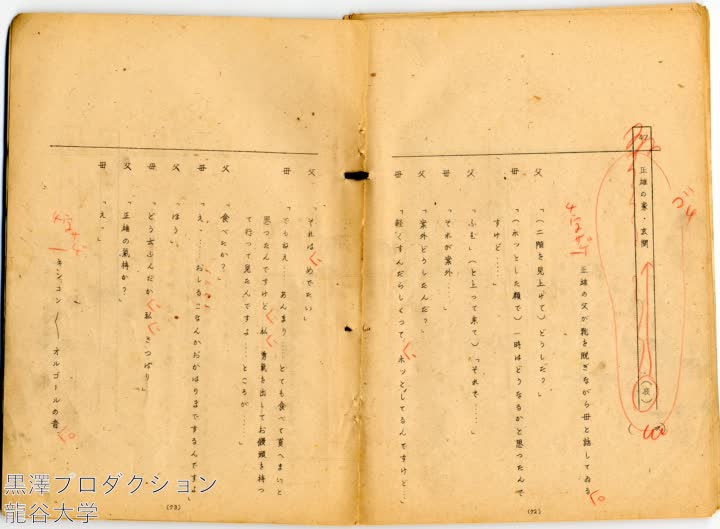 正雄の家・玄関
(夜)
正雄の父が靴を脱ぎながら母と話してゐる
父 「(二階を見上げて)どうした?」
母 「(ホッとした顔で)一時はどうなるかと思つたんで
すけど……」
父 「ふむ」(と上つて来て)「それで……」
母 「それが案外……」
父 「案外どうしたんだ?」
母 「軽くすんだらしくつて、ホッとしてるんですけど…」
(72)
父 「それはめでたい」
母 「でもねえ……あんまり……とても食べて貰へまいと
思つたんですけど、私、勇気を出してお饅頭を持つ
て行つて見たんですよ……ところが……」
父 「食べたか?」
母 「え、……おしるこなんかおかはりまでするんですよ」
父 「ほう」
母 「どう云ふんだか、私、さつぱり」
父 「正雄の気持か?」
母 「え。」
キンコン オルゴールの音
(73)
黒澤プロダクション
龍谷大学